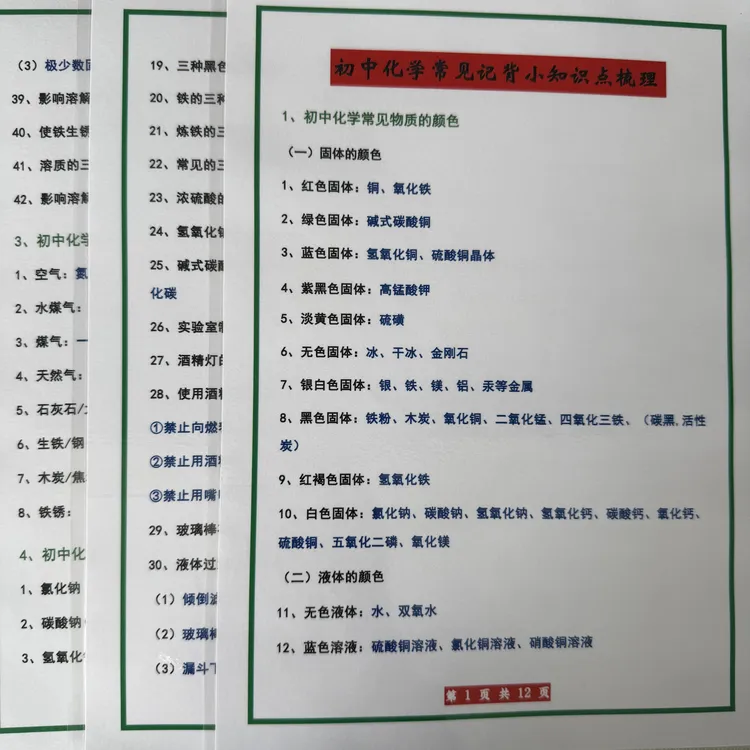 (3)极少数
39、影响溶解
40、使铁生锈
41、溶质的三
42、影响溶解
3、初中化学
1、空气：氮
2、水煤气：
3、煤气：一
4、天然气：
5、石灰石/
6、生铁/钢
7、木炭/焦
8、铁锈：
4、初中化
1、氯化钠
2、碳酸钠
3、氢氧化
19、三种黑色
20、铁的三种
21、炼铁的三
22、常见的三
23、浓硫酸的
24、氢氧化钠
25、碱式碳酸
化碳
26、实验室制
27、酒精灯的
28、使用酒精
①禁止向燃
②禁止用酒
③禁止用嘴
29、玻璃棒
30、液体过
(1)倾倒
(2)玻璃棒
(3)漏斗下
初中化学常见记背小知识点梳理
1、初中化学常见物质的颜色
(一)固体的颜色
1、红色固体：铜、氧化铁
2、绿色固体：碱式碳酸铜
3、蓝色固体：氢氧化铜、硫酸铜晶体
4、紫黑色固体：高锰酸钾
5、淡黄色固体：硫磺
6、无色固体：冰、干冰、金刚石
7、银白色固体：银、铁、镁、铝、汞等金属
8、黑色固体：铁粉、木炭、氧化铜、二氧化锰、四氧化三铁、（碳黑,活性
炭）
9、红褐色固体：氢氧化铁
10、白色固体：氯化钠、碳酸钠、氢氧化钠、氢氧化钙、碳酸钙、氧化钙、
硫酸铜、五氧化二磷、氧化镁
(二)液体的颜色
11、无色液体：水、双氧水
12、蓝色溶液：硫酸铜溶液、氯化铜溶液、硝酸铜溶液
第 1 页 共 12 页